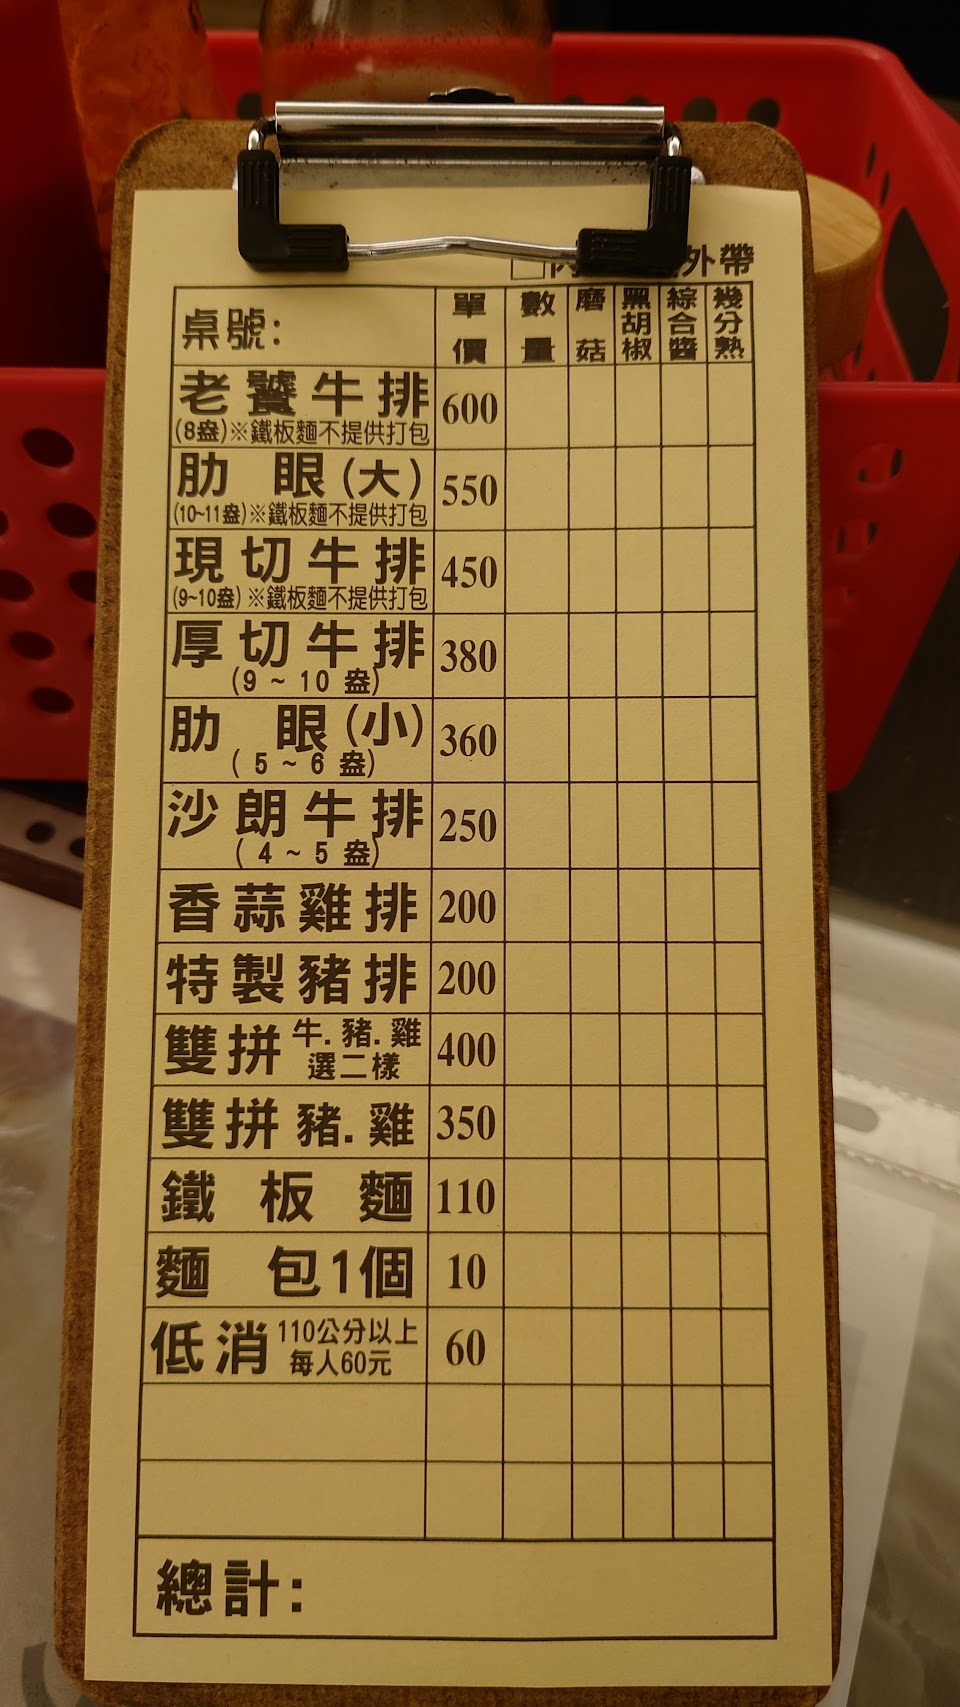 外帶
桌號: 單價 數量 磨菇 黑胡椒 綜合醬 幾分熟
老饕牛排 600
(8盎)※鐵板麵不提供打包
肋眼(大) 550
(10~11盎)※鐵板麵不提供打包
現切牛排 450
(9~10盎)※鐵板麵不提供打包
厚切牛排 380
(9~10盎)
肋眼(小) 360
(5~6盎)
沙朗牛排 250
(4~5盎)
香蒜雞排 200
特製豬排 200
雙拼 牛.豬.雞 選二樣 400
雙拼 豬.雞 350
鐵板麵 110
麵包1個 10
低消 110公分以上 每人60元 60
總計: